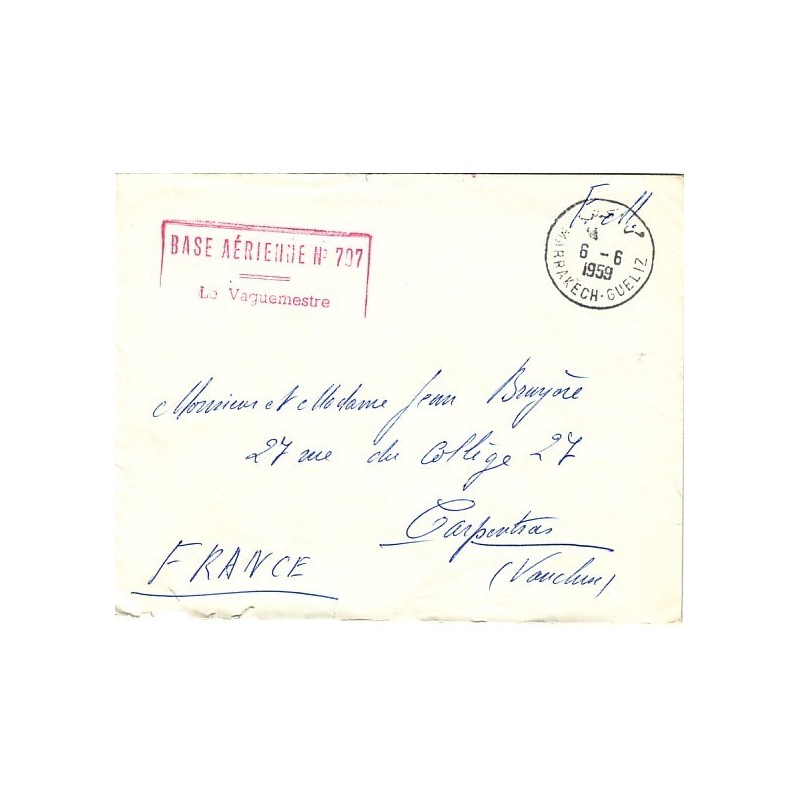 BASE AÉRIENNE Nº 707
Le Vaguemestre
F. M.
6 - 6
1959
MARRAKECH-GUELIZ
Monsieur et Madame Jean Bruyère
27 rue du Collège 27
Carpentras
(Vaucluse)
FRANCE